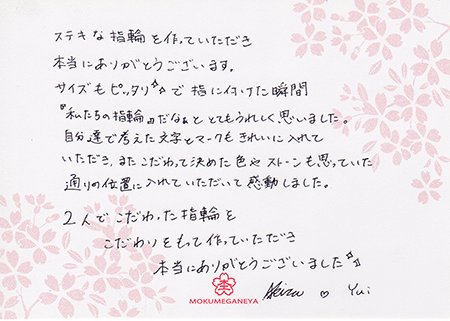 ステキな指輪を作っていただき
本当にありがとうございます。
サイズもピッタリ☆で指に付けた瞬間
『私たちの指輪』だなぁととてもうれしく思いました。
自分達で考えた文字とマークもきれいに入れて
いただき、またこだわって決めた色やストーンも思っていた
通りの位置に入れていただいて感動しました。
2人でこだわった指輪を
こだわりをもって作っていただき
本当にありがとうございました☆
MOKUMEGANEYA
♡ Yui